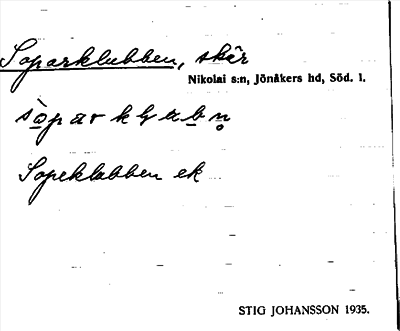 Soparklubben, skär
Nikolai s:n, Jönåkers hd, Söd. l.
Sopeklabben ek
STIG JOHANSSON 1935.